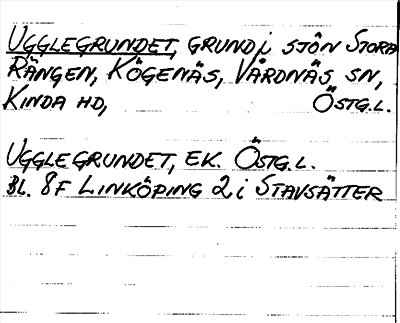 UGGLEGRUNDET, GRUND i SJÖN STORA
RÄNGEN, KÖGENÄS, VÅRDNÄS SN,
KINDA HD, ÖSTG.L.
UGGLEGRUNDET, EK. ÖSTG.L.
BL. 8F LINKÖPING 2 i STAVSÄTTER